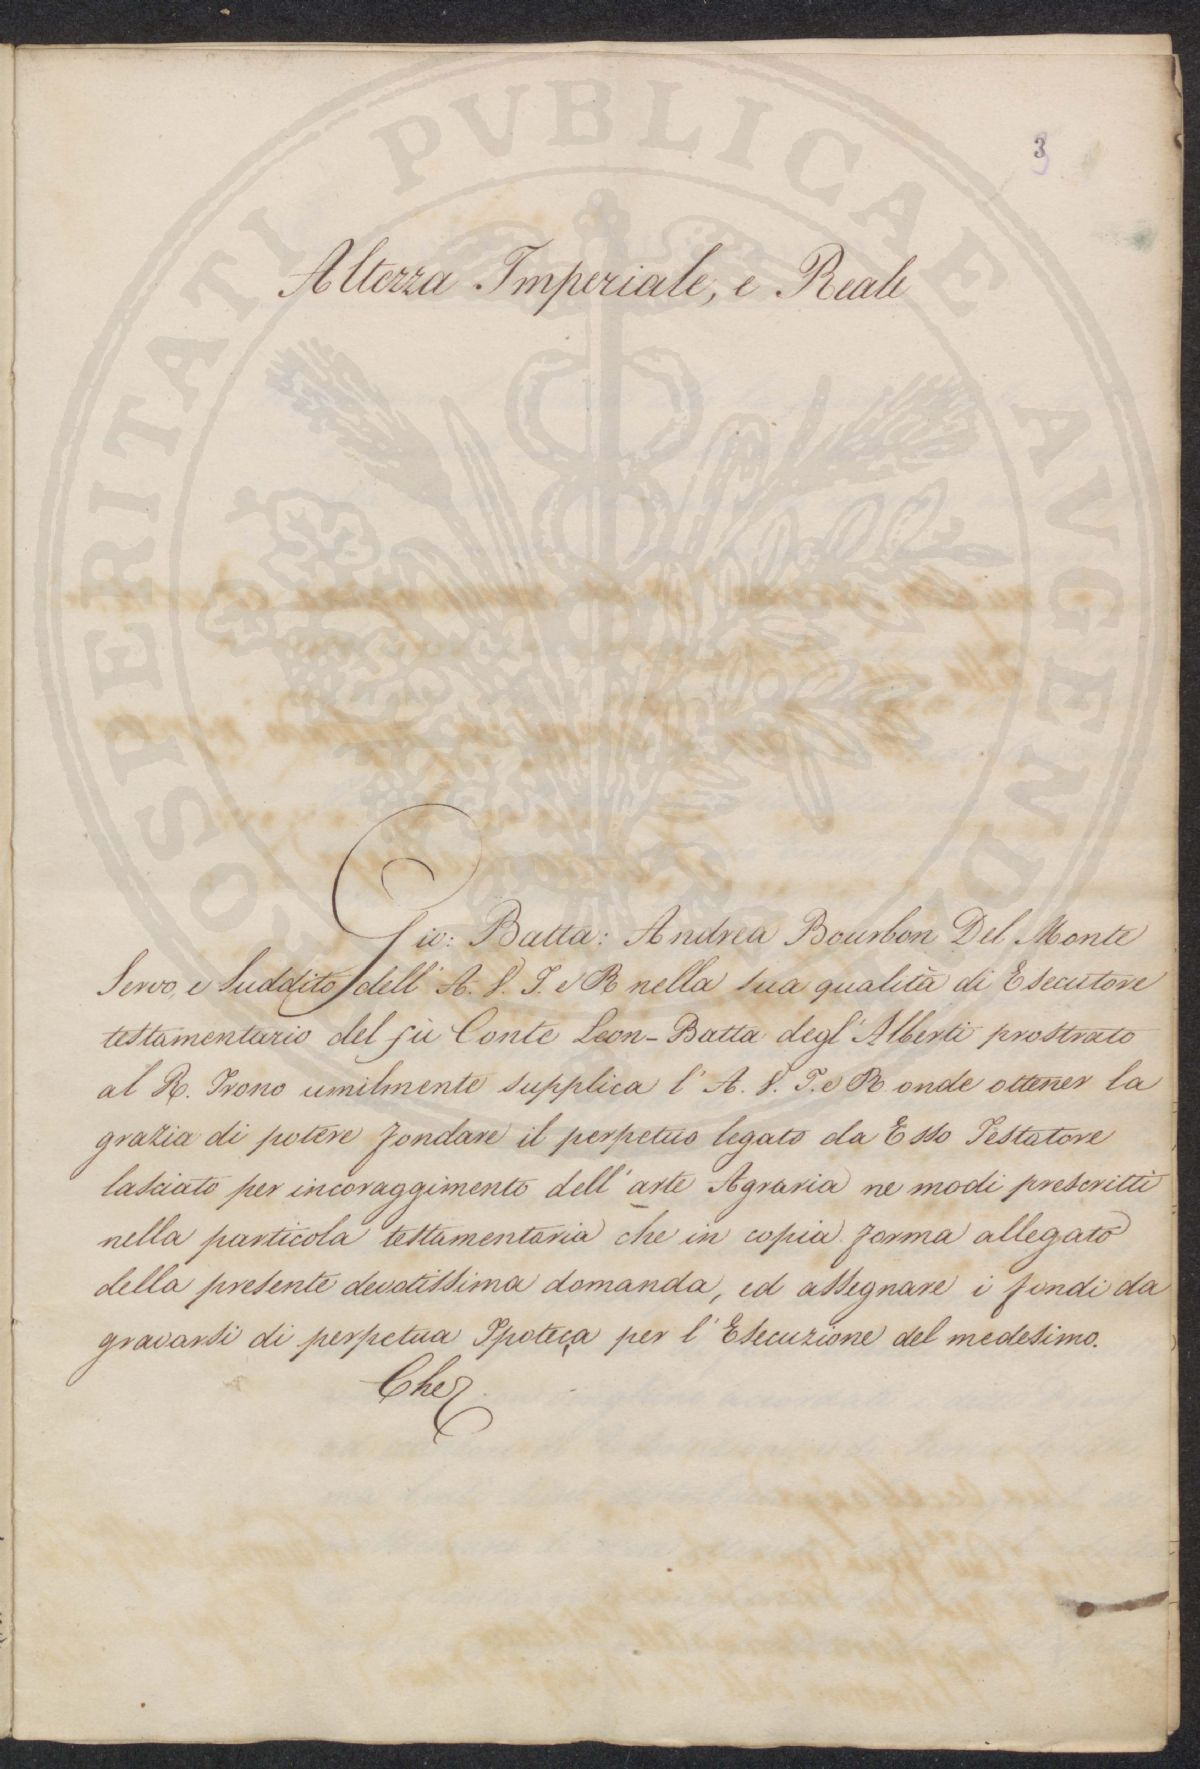 PROSPERITATI PVBLICAE AVGENDAE
3
Altezza Imperiale, e Reale
Gio: Batta: Andrea Bourbon Del Monte
Servo, e Suddito dell' A. V. I. e R nella sua qualità di Esecutore
testamentario del fù Conte Leon-Batta degl' Alberti prostrato
al R. Trono umilmente supplica l' A. V. I. e R onde ottener la
grazia di potere fondare il perpetuo legato da Esso Testatore
lasciato per incoraggimento dell' arte Agraria ne modi prescritti
nella particola testamentaria che in copia forma allegato
della presente devotissima domanda, ed assegnare i fondi da
gravarsi di perpetua Ipoteca per l' Esecuzione del medesimo.
Che